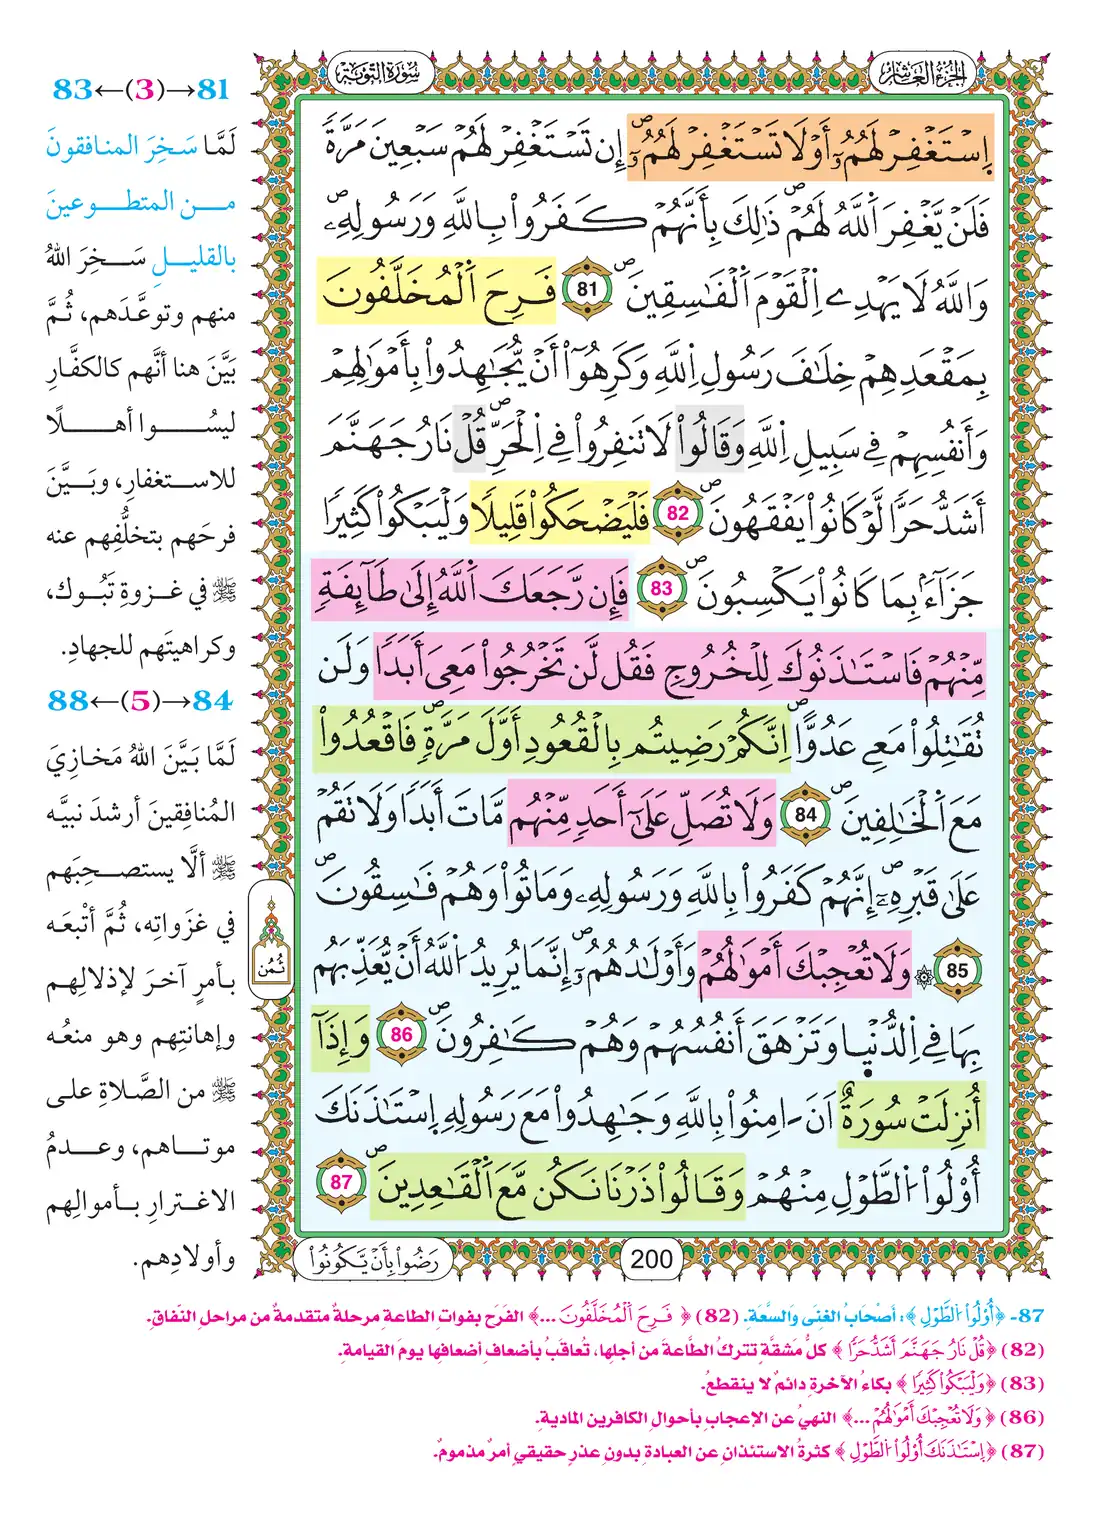 الجزء العاشر
سورة التوبة
اِ۪سْتَغْفِرْ لَهُمُۥٓ أَوْ لَا تَسْتَغْفِرْ لَهُمُۥٓۖ إِن تَسْتَغْفِرْ لَهُمْ سَبْعِينَ مَرَّةٗ
فَلَنْ يَّغْفِرَ اَ۬للَّهُ لَهُمْۖ ذَٰلِكَ بِأَنَّهُمْ كَفَرُواْ بِاللَّهِ وَرَسُولِهِۦۖ
وَاللَّهُ لَا يَهْدِے اِ۬لْقَوْمَ اَ۬لْفَٰسِقِينَۖ 81 فَرِحَ اَ۬لْمُخَلَّفُونَ
بِمَقْعَدِهِمْ خِلَٰفَ رَسُولِ اِ۬للَّهِ وَكَرِهُوٓاْ أَنْ يُّجَٰهِدُواْ بِأَمْوَٰلِهِمْ
وَأَنفُسِهِمْ فِے سَبِيلِ اِ۬للَّهِ وَقَالُواْ لَا تَنفِرُواْ فِے اِ۬لْحَرِّۖ قُلْ نَارُ جَهَنَّمَ
أَشَدُّ حَرّاٗ لَّوْ كَانُواْ يَفْقَهُونَۖ 82 فَلْيَضْحَكُواْ قَلِيلاٗ وَلْيَبْكُواْ كَثِيراٗ
جَزَآءَۢ بِمَا كَانُواْ يَكْسِبُونَۖ 83 فَإِن رَّجَعَكَ اَ۬للَّهُ إِلَىٰ طَآئِفَةٖ
مِّنْهُمْ فَاسْتَـٰٔذَنُوكَ لِلْخُرُوجِ فَقُل لَّن تَخْرُجُواْ مَعِيَ أَبَداٗ وَلَن
تُقَٰتِلُواْ مَعِے عَدُوّاًۖ اِنَّكُمْ رَضِيتُم بِالْقُعُودِ أَوَّلَ مَرَّةٖۖ فَاقْعُدُواْ
مَعَ اَ۬لْخَٰلِفِينَۖ 84 وَلَا تُصَلِّ عَلَىٰٓ أَحَدٖ مِّنْهُم مَّاتَ أَبَداٗ وَلَا تَقُمْ
عَلَىٰ قَبْرِهِۦٓۖ إِنَّهُمْ كَفَرُواْ بِاللَّهِ وَرَسُولِهِۦ وَمَاتُواْ وَهُمْ فَٰسِقُونَۖ
85 ۞ وَلَا تُعْجِبْكَ أَمْوَٰلُهُمْ وَأَوْلَٰدُهُمُۥٓۖ إِنَّمَا يُرِيدُ اُ۬للَّهُ أَنْ يُّعَذِّبَهُم
بِهَا فِے اِ۬لدُّنْي۪ا وَتَزْهَقَ أَنفُسُهُمْ وَهُمْ كَٰفِرُونَۖ 86 وَإِذَآ
أُنزِلَتْ سُورَةٌ اَنَ اٰمِنُواْ بِاللَّهِ وَجَٰهِدُواْ مَعَ رَسُولِهِ اِ۪سْتَـٰٔذَنَكَ
أُوْلُواْ اُ۬لطَّوْلِ مِنْهُمْ وَقَالُواْ ذَرْنَا نَكُن مَّعَ اَ۬لْقَٰعِدِينَۖ 87
ثمن
200
رَضُواْ بِأَنْ يَّكُونُواْ
81→(3)←83
لَمَّا سَخِرَ المنافقونَ
من المتطوعينَ
بالقليلِ سَخِرَ اللهُ
منهم وتوعَّدَهم، ثُمَّ
بَيَّنَ هنا أنَّهم كالكفَّارِ
ليسُوا أهلًا
للاستغفارِ، وبَيَّنَ
فرحَهم بتخلُّفِهم عنه
ﷺ في غزوةِ تَبُوك،
وكراهيتَهم للجهادِ.
84→(5)←88
لَمَّا بَيَّنَ اللهُ مَخازِيَ
المُنافِقينَ أرشدَ نبيَّه
ﷺ ألَّا يستصحِبَهم
في غزَواتِه، ثُمَّ أتْبعَه
بأمرٍ آخرَ لإذلالِهم
وإهانتِهم وهو منعُه
ﷺ من الصَّلاةِ على
موتاهم، وعدمُ
الاغترارِ بأموالِهم
وأولادِهم.
87- ﴿أُوْلُواْ اُ۬لطَّوْلِ﴾: أصْحَابُ الغِنَى وَالسَّعَةِ. (82) ﴿فَرِحَ اَ۬لْمُخَلَّفُونَ ...﴾ الفرَح بفوات الطاعةِ مرحلةٌ متقدمةٌ من مراحل النِّفاقِ.
(82) ﴿قُلْ نَارُ جَهَنَّمَ أَشَدُّ حَرّاٗ﴾ كلُّ مَشقَّةٍ تتركُ الطَّاعةَ من أجلِها، تُعاقَبُ بأضعافِ أضعافِها يومَ القيامةِ.
(83) ﴿وَلْيَبْكُواْ كَثِيراٗ﴾ بكاءُ الآخرةِ دائمٌ لا ينقطعُ.
(86) ﴿وَلَا تُعْجِبْكَ أَمْوَٰلُهُمْ ...﴾ النهيُ عن الإعجابِ بأحوالِ الكافرين الماديةِ.
(87) ﴿اِ۪سْتَـٰٔذَنَكَ أُوْلُواْ اُ۬لطَّوْلِ﴾ كثرةُ الاستئذانِ عن العبادةِ بدونِ عذرٍ حقيقيٍ أمرٌ مذمومٌ.